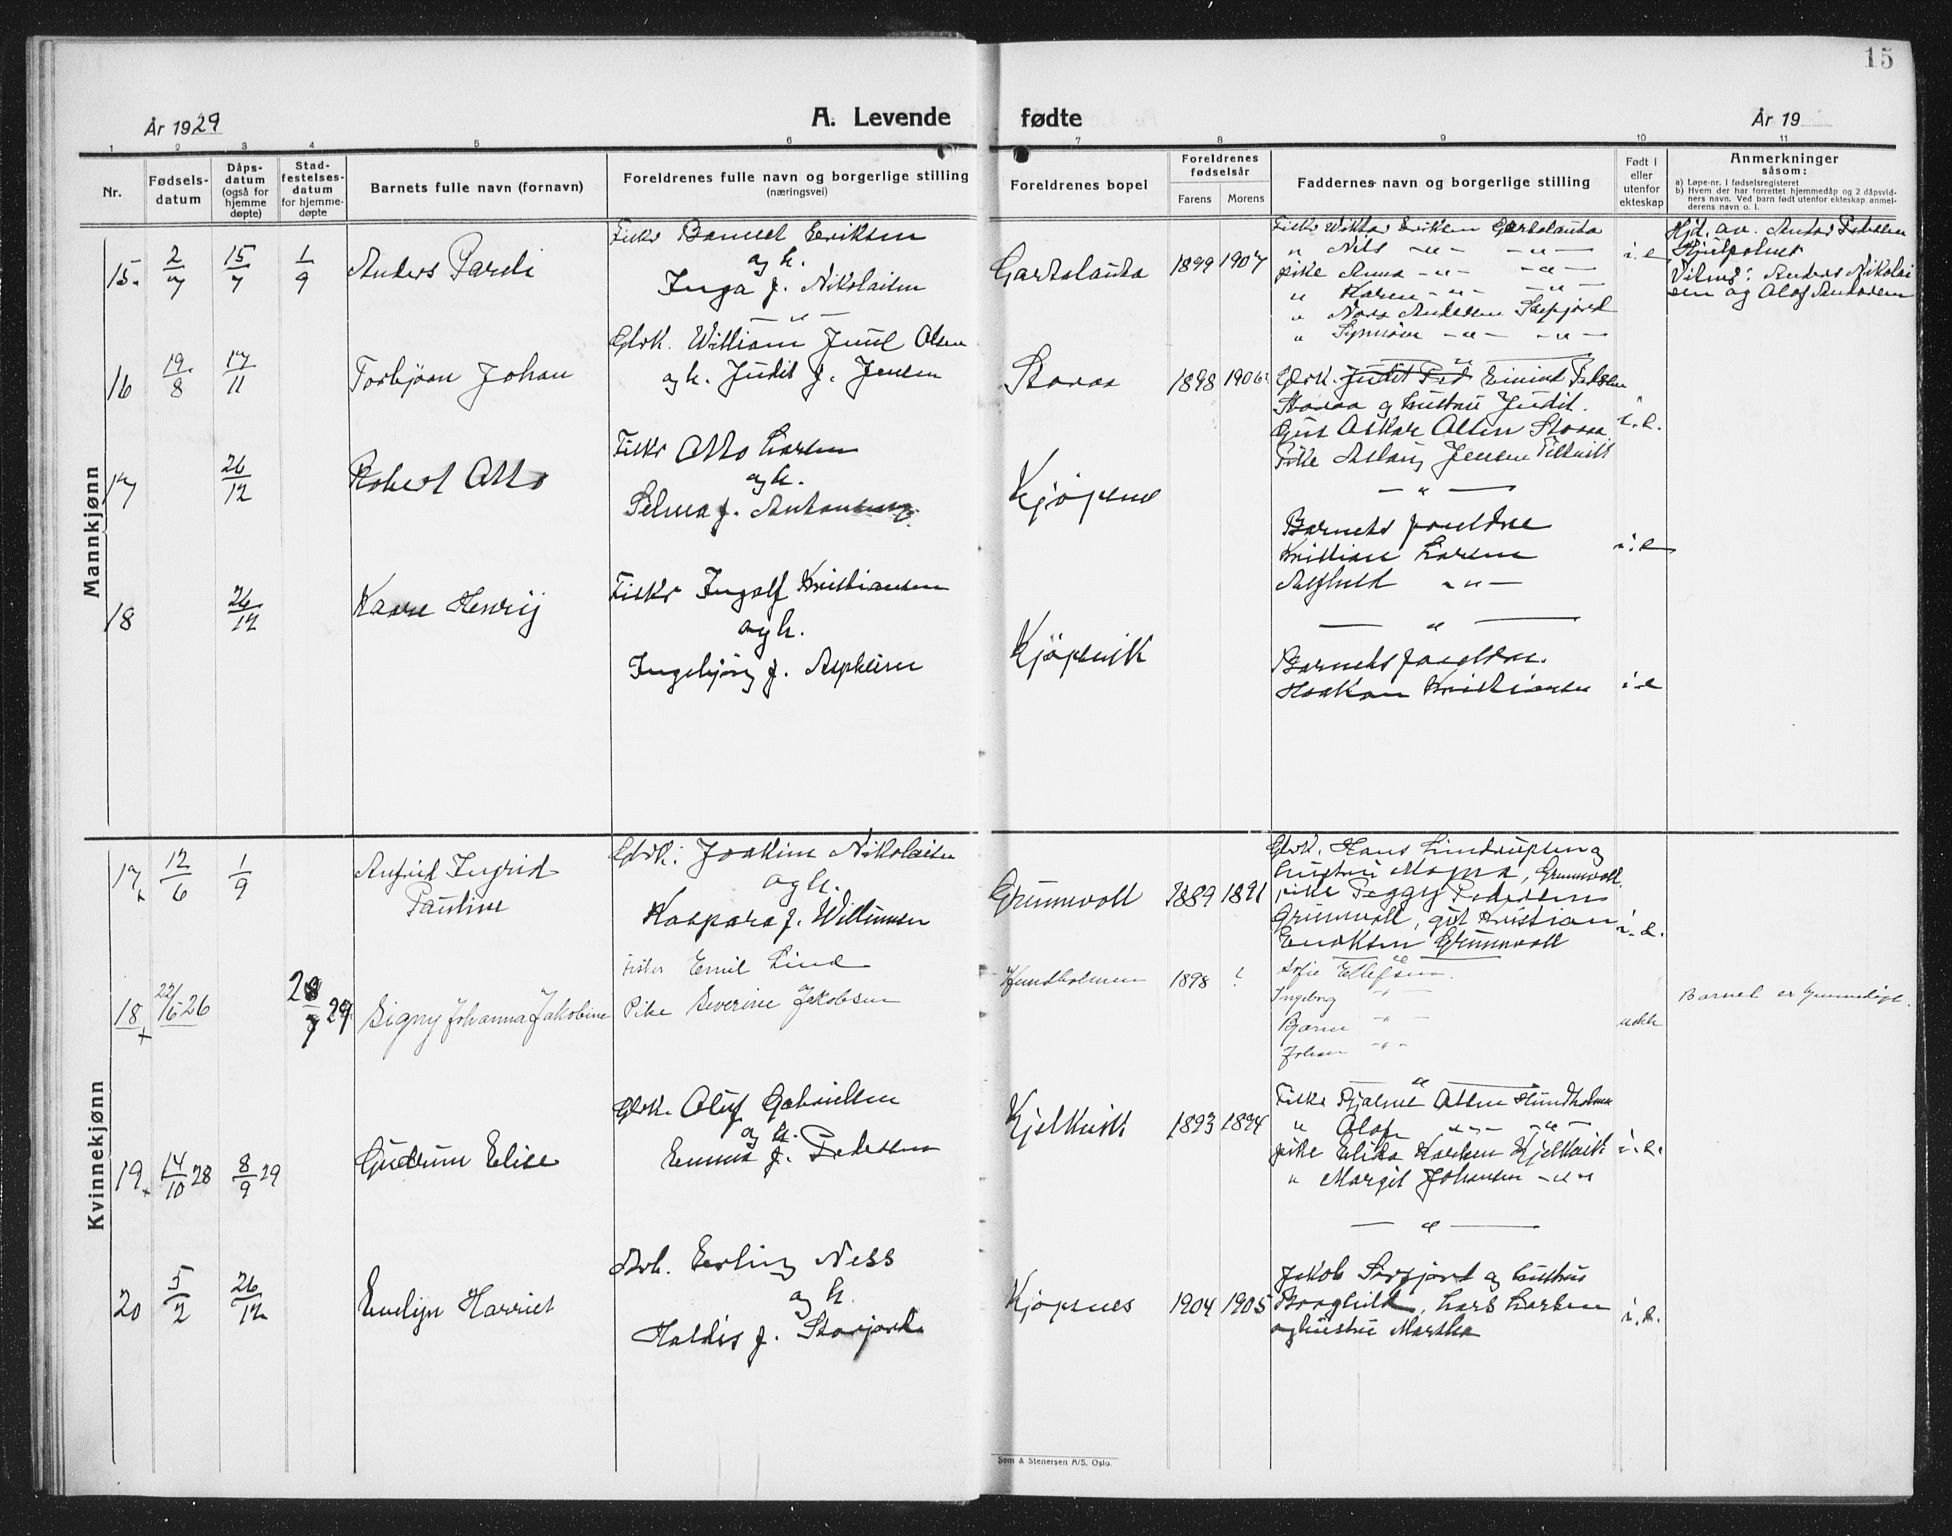 15
År 1929
A. Levende
fødte
År 19
1 2 3 4 5 6 7 8 9 10 11
Nr.
Fødsels-
datum
Dåps-
datum
(også for
hjemme
døpte)
Stad-
festelses-
datum
for hjemme-
døpte
Barnets fulle navn (fornavn)
Foreldrenes fulle navn og borgerlige stilling
(næringsvei)
Foreldrenes bopel
Foreldrenes
fødselsår
Farens Morens
Faddernes navn og borgerlige stilling
Født i
eller
utenfor
ekteskap
Anmerkninger
såsom:
a) Løpe-nr. i fødselsregisteret
b) Hvem der har forrettet hjemmedåp og 2 dåpsvid-
ners navn. Ved barn født utenfor ekteskap anmel-
derens navn o. l.
Mannkjønn
15. 2/7 15/7 1/9 Anders Pareli
Fisker Eriksen
og h.
Inga f. Nikolaisen
1899 1907
Fisker Eriksen
" Nils -"- -"-
pike Anna -"- -"-
" Karen -"- -"-
" Nora Andersen
" -"- -"-
i. e.
Hjd. av.
Vitner: Anders Nikolai
sen og Olof
16 19/8 17/11 Torbjørn Johan
Gbrk. William Juul Olsen
og h. Judit f. Jensen
Storaa
1898 1906
Gbrk. Eivind
Storaa og hustru Judit.
Gut Oskar Olsen Storaa
Pike Aslaug Jensen
i. e.
17 26/12 Robert Otto
Fisker Otto Larsen
og h.
Selma f.
Kjøpsnes
Barnets foreldre
Kristian Larsen
Alfhild -"-
i. e
18 26/12 Kaare Henrij
Fisker Ingolf Kristiansen
og h.
Ingebjørg f.
Kjøpsvik
Barnets foreldre.
Haakon Kristiansen
i. e
Kvinnekjønn
17 12/6 1/9 Anfrid Ingrid
Pauline
Gbrk. Joakim Nikolaisen
og h.
Kaspara f. Willumsen
Grunnvoll
1889 1891
Gbrk. Hans og
hustru Magna, Grunnvoll.
pike Peggy Pedersen
Grunnvoll, gut Kristian
Eriksen Grunnvoll
i. e.
18 22/5 26 28/7 29 Signy Johanna Jakobine
Fisker Emil Lind
Pike Severine Jakobsen
Hundholmen
1898 ?
Sofie Ellefsen
Ingeborg -"-
Bjarne -"-
Johan -"-
uekte
Barnet er hjemmedøpt.
19 14/10 28 8/9 29 Gudrun Elise
Gbrk. Oluf Gabrielsen
og h.
Emma f. Pedersen
Kjelkvik
1893 1894
Fisker Hjalmar Olsen Hundholmen
" Olaf -"- -"-
pike Elika Karlsen Kjelkvik
" Margit Johansen -"-
i. e.
20 5/2 26/12 Evelyn Harriet
Arb. Erling Ness
og h.
Haldis f. Storjord
Kjøpsnes
1904 1905
Jakob Sørfjord og hustru
Borghild, Lars Larsen
og hustru Martha
i. e.
Sem & Stenersen A/S, Oslo.